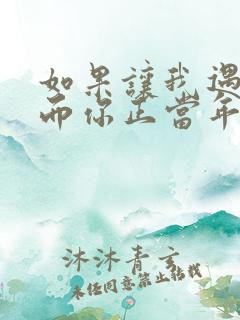 如果讓我遇
而你正當年
沐沐青玄
未经同意禁止转载